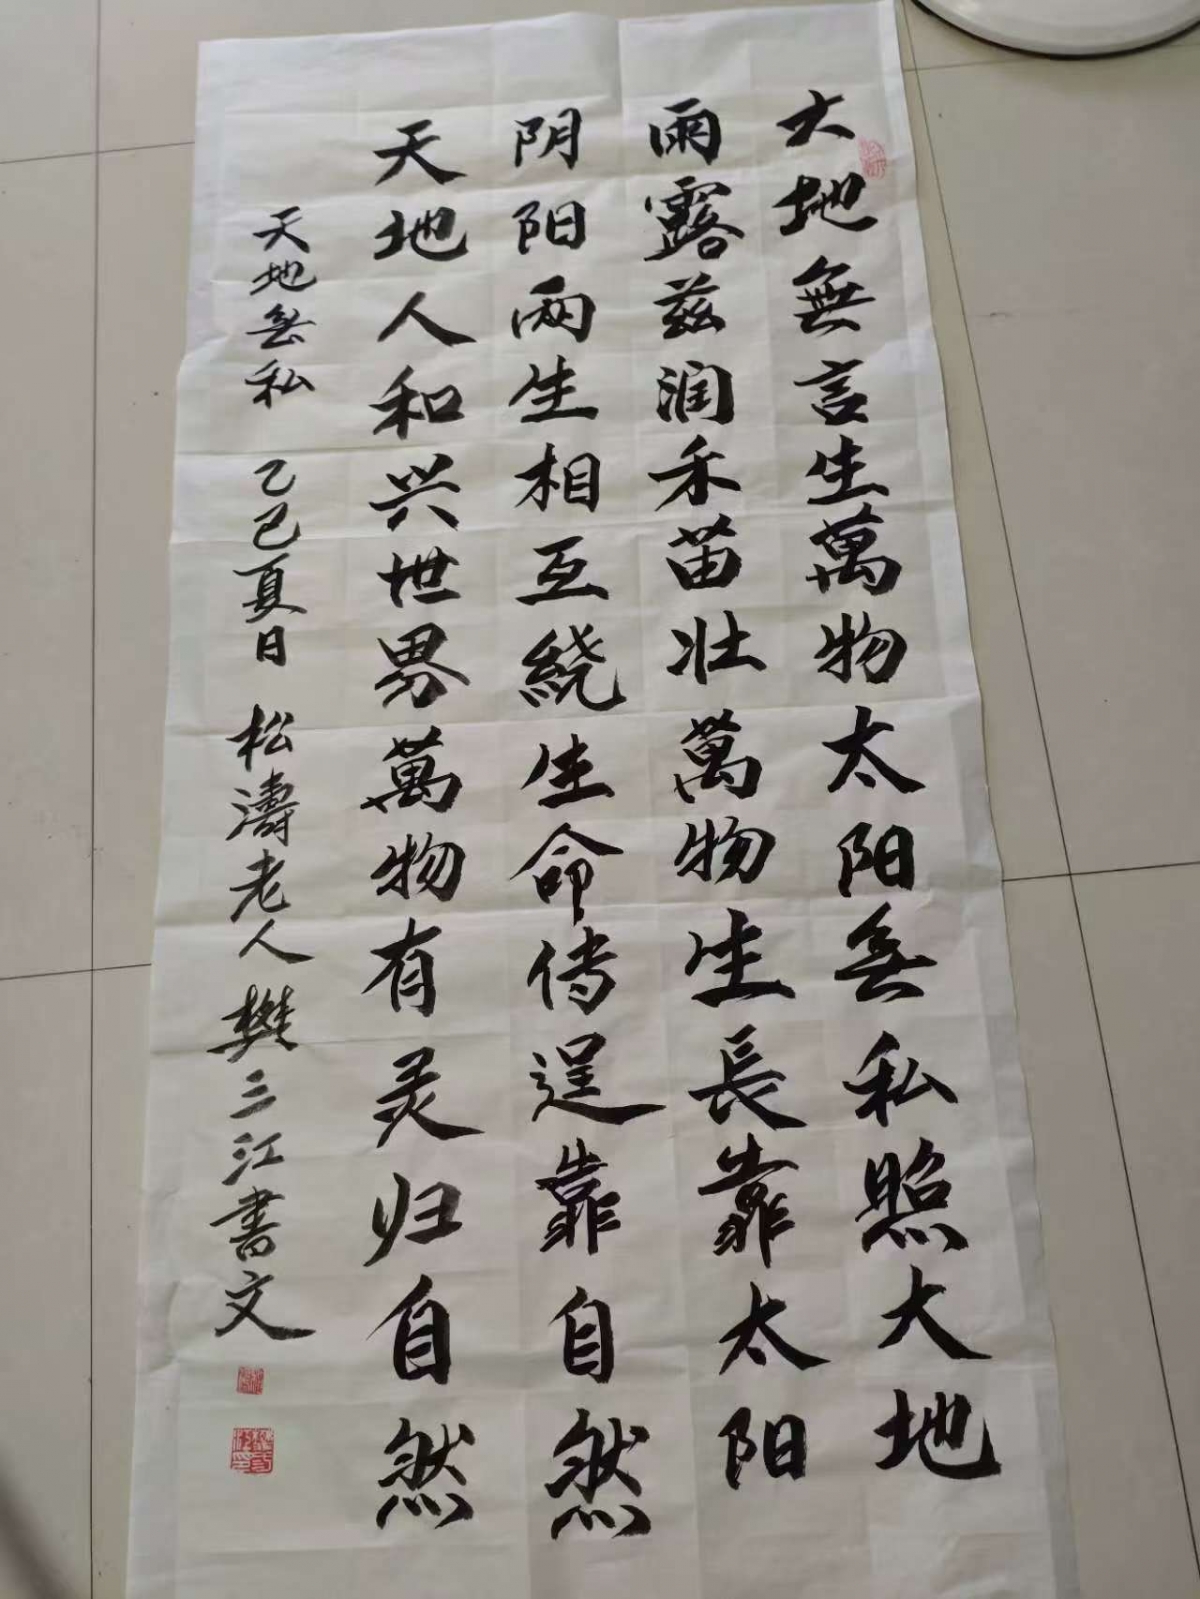 大地無言生萬物太阳無私照大地
雨露兹润禾苗壮萬物生長靠太阳
阴阳两生相互繞生命传逞靠自然
天地人和兴世界萬物有灵归自然
天地無私 乙巳夏日 松濤老人樊三江書文